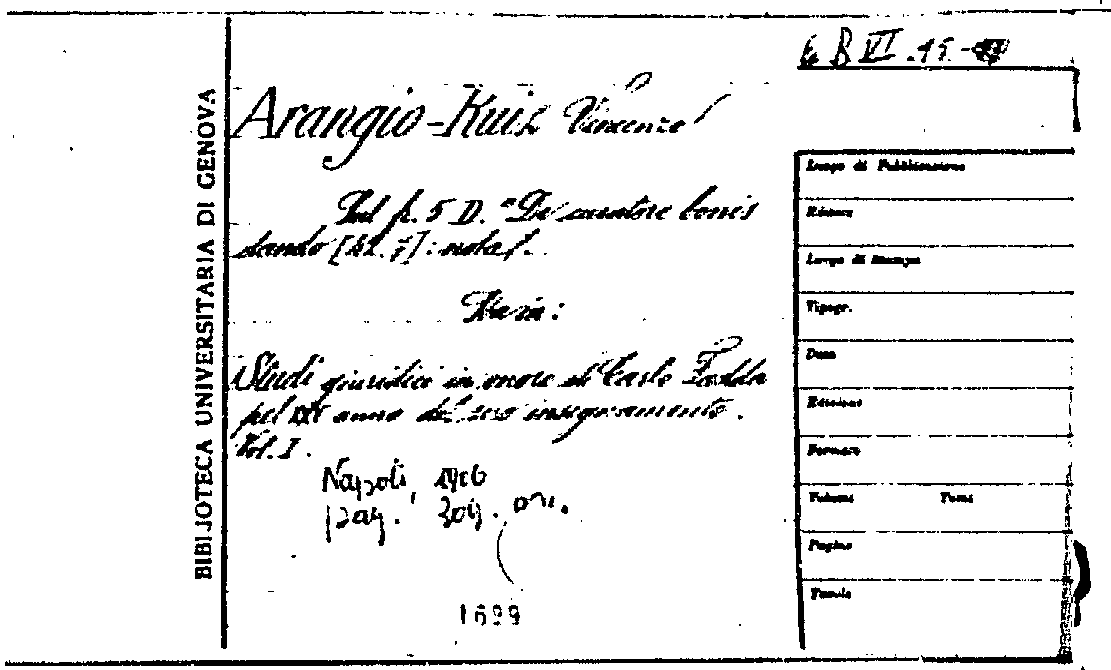 BIBLIOTECA UNIVERSITARIA DI GENOVA
6 B VI .45-
Arangio-Ruiz Vincenzo
Sul fr. 5 D. "De curatore bonis
dando [42. 7]: nota.
Sta in:
Studi giuridici in onore di Carlo Fadda
pel XXV anno del suo insegnamento.
Vol. I.
Napoli, 1906
pag. 309. on.
1699
Luogo di Pubblicazione
Editore
Luogo di Stampa
Tipogr.
Data
Edizione
Formato
Volumi Tomi
Pagine
Tavole